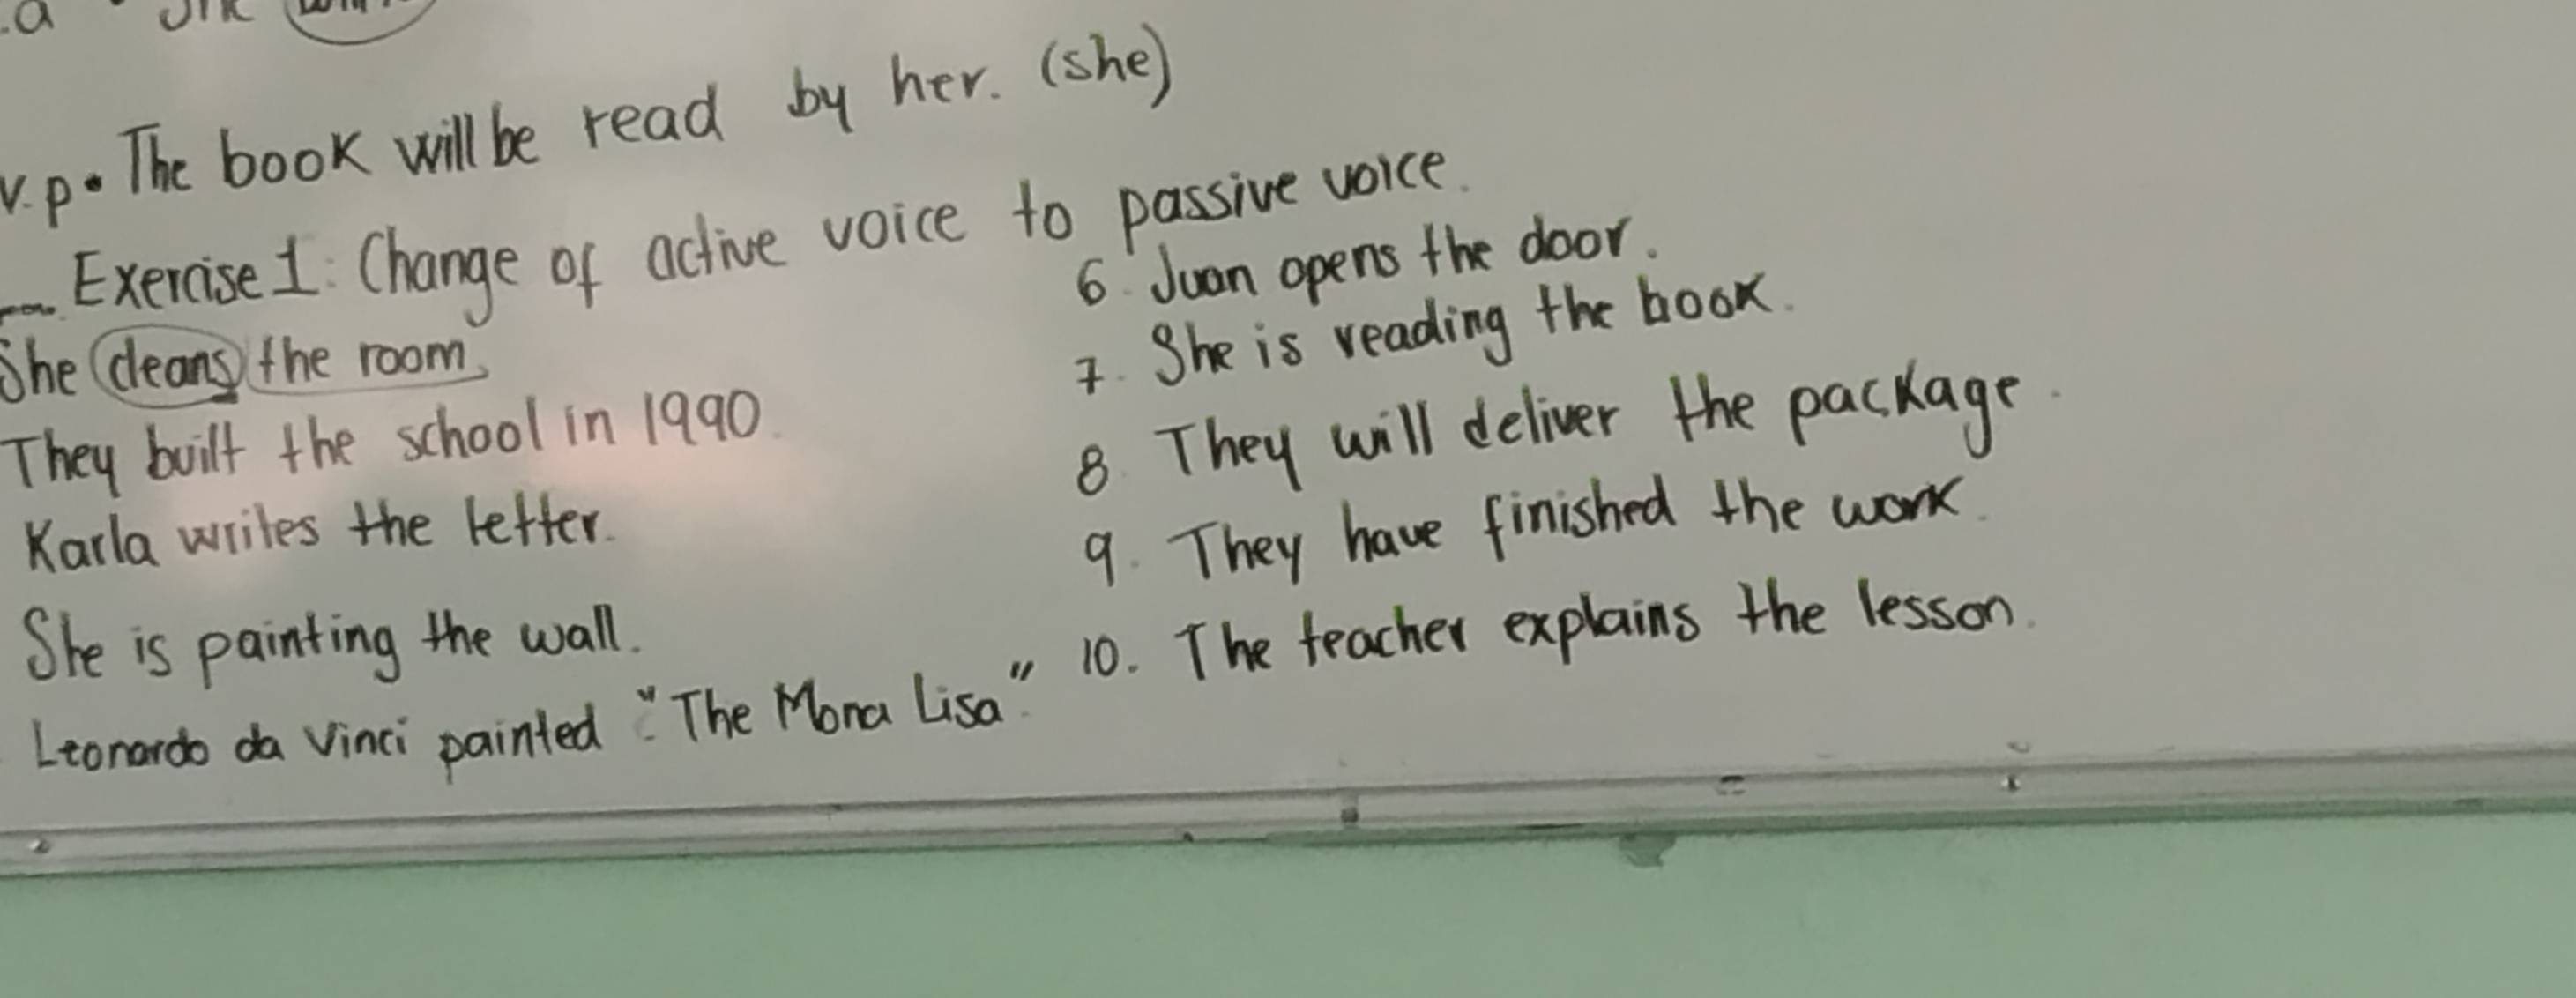 v.p • The book will be read by her. (she)
Exercise 1: Change of active voice to passive voice.
She cleans the room.
They built the school in 1990.
Karla writes the letter.
She is painting the wall.
Leonardo da Vinci painted "The Mona Lisa."
6. Juan opens the door.
7. She is reading the book.
8. They will deliver the package.
9. They have finished the work.
10. The teacher explains the lesson.